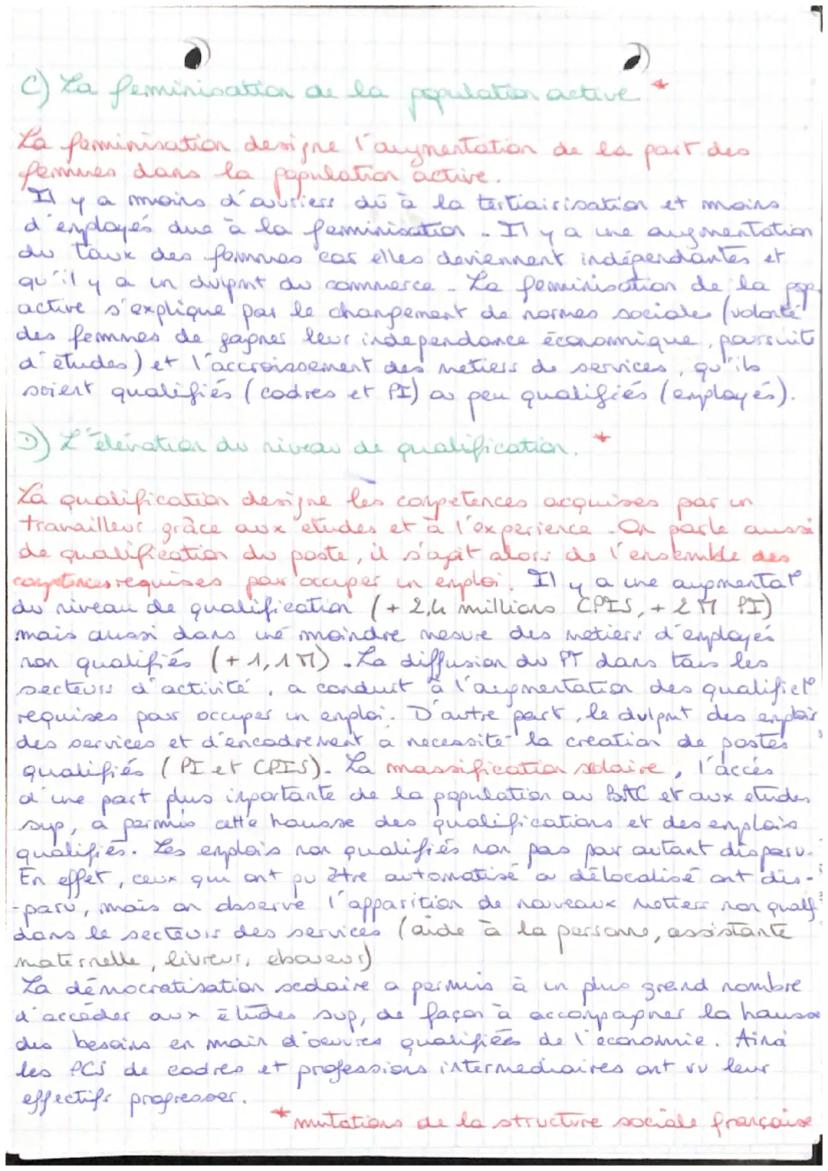 C) La feminisation de la population active *
La feminisation designe l'augmentation de la part des
femmes dans la population active.
Il y a moins d'ouvriers dû à la tertiairisation et moins
d'employés due à la feminisation. Il y a une augmentation
du taux des femmes car elles deviennent indépendantes et
qu'il y a un dvlpmt du commerce. La feminisation de la pop
active s'explique par le changement de normes sociales (volonté
des femmes de gagner leur independance économique, poursuit
d'études) et l'accroissement des metiers de services, qu'ils
soient qualifiés (cadres et PI) ou peu qualifiés (employés).
D) L'élévation du niveau de qualification. *
La qualification designe les competences acquises par un
travailleur grâce aux études et à l'experience. On parle aussi
de qualification du poste, il s'agit alors de l'ensemble des
competences requises pour occuper un emploi. Il y a une augmentat°
du niveau de qualification (+ 2,4 millions CPIS, + 2 M PI)
mais aussi dans une moindre mesure des metiers d'employés
non qualifiés (+ 1,1 M). La diffusion du PT dans tous les
secteurs d'activité, a conduit à l'augmentation des qualificat°
requises pour occuper un emploi. D'autre part, le dvlpmt des emplois
des services et d'encadrement à necessité la creation de postes
qualifiés (PI et CPIS). La massification scolaire, l'accés
d'une part plus importante de la population au BAC et aux etudes
sup, a permis cette hausse des qualifications et des emplois
qualifiés. Les emplois non qualifiés non pas pour autant disparu.
En effet, ceux qui ont pu être automatisé ou délocalisé ont dis-
-paru, mais on observe l'apparition de nouveaux metiers non qualif
dans le secteurs des services (aide à la personne, assistante
maternelle, livreur, eboueur)
La démocratisation scolaire a permis à un plus grand nombre
d'accéder aux études sup, de façon à accompagner la hausse
des besoins en main d'oeuvres qualifiées de l'économie. Ainsi
les PCS de cadres et professions intermediaires ont vu leur
effectifs progresser.
* mutations de la structure sociale française